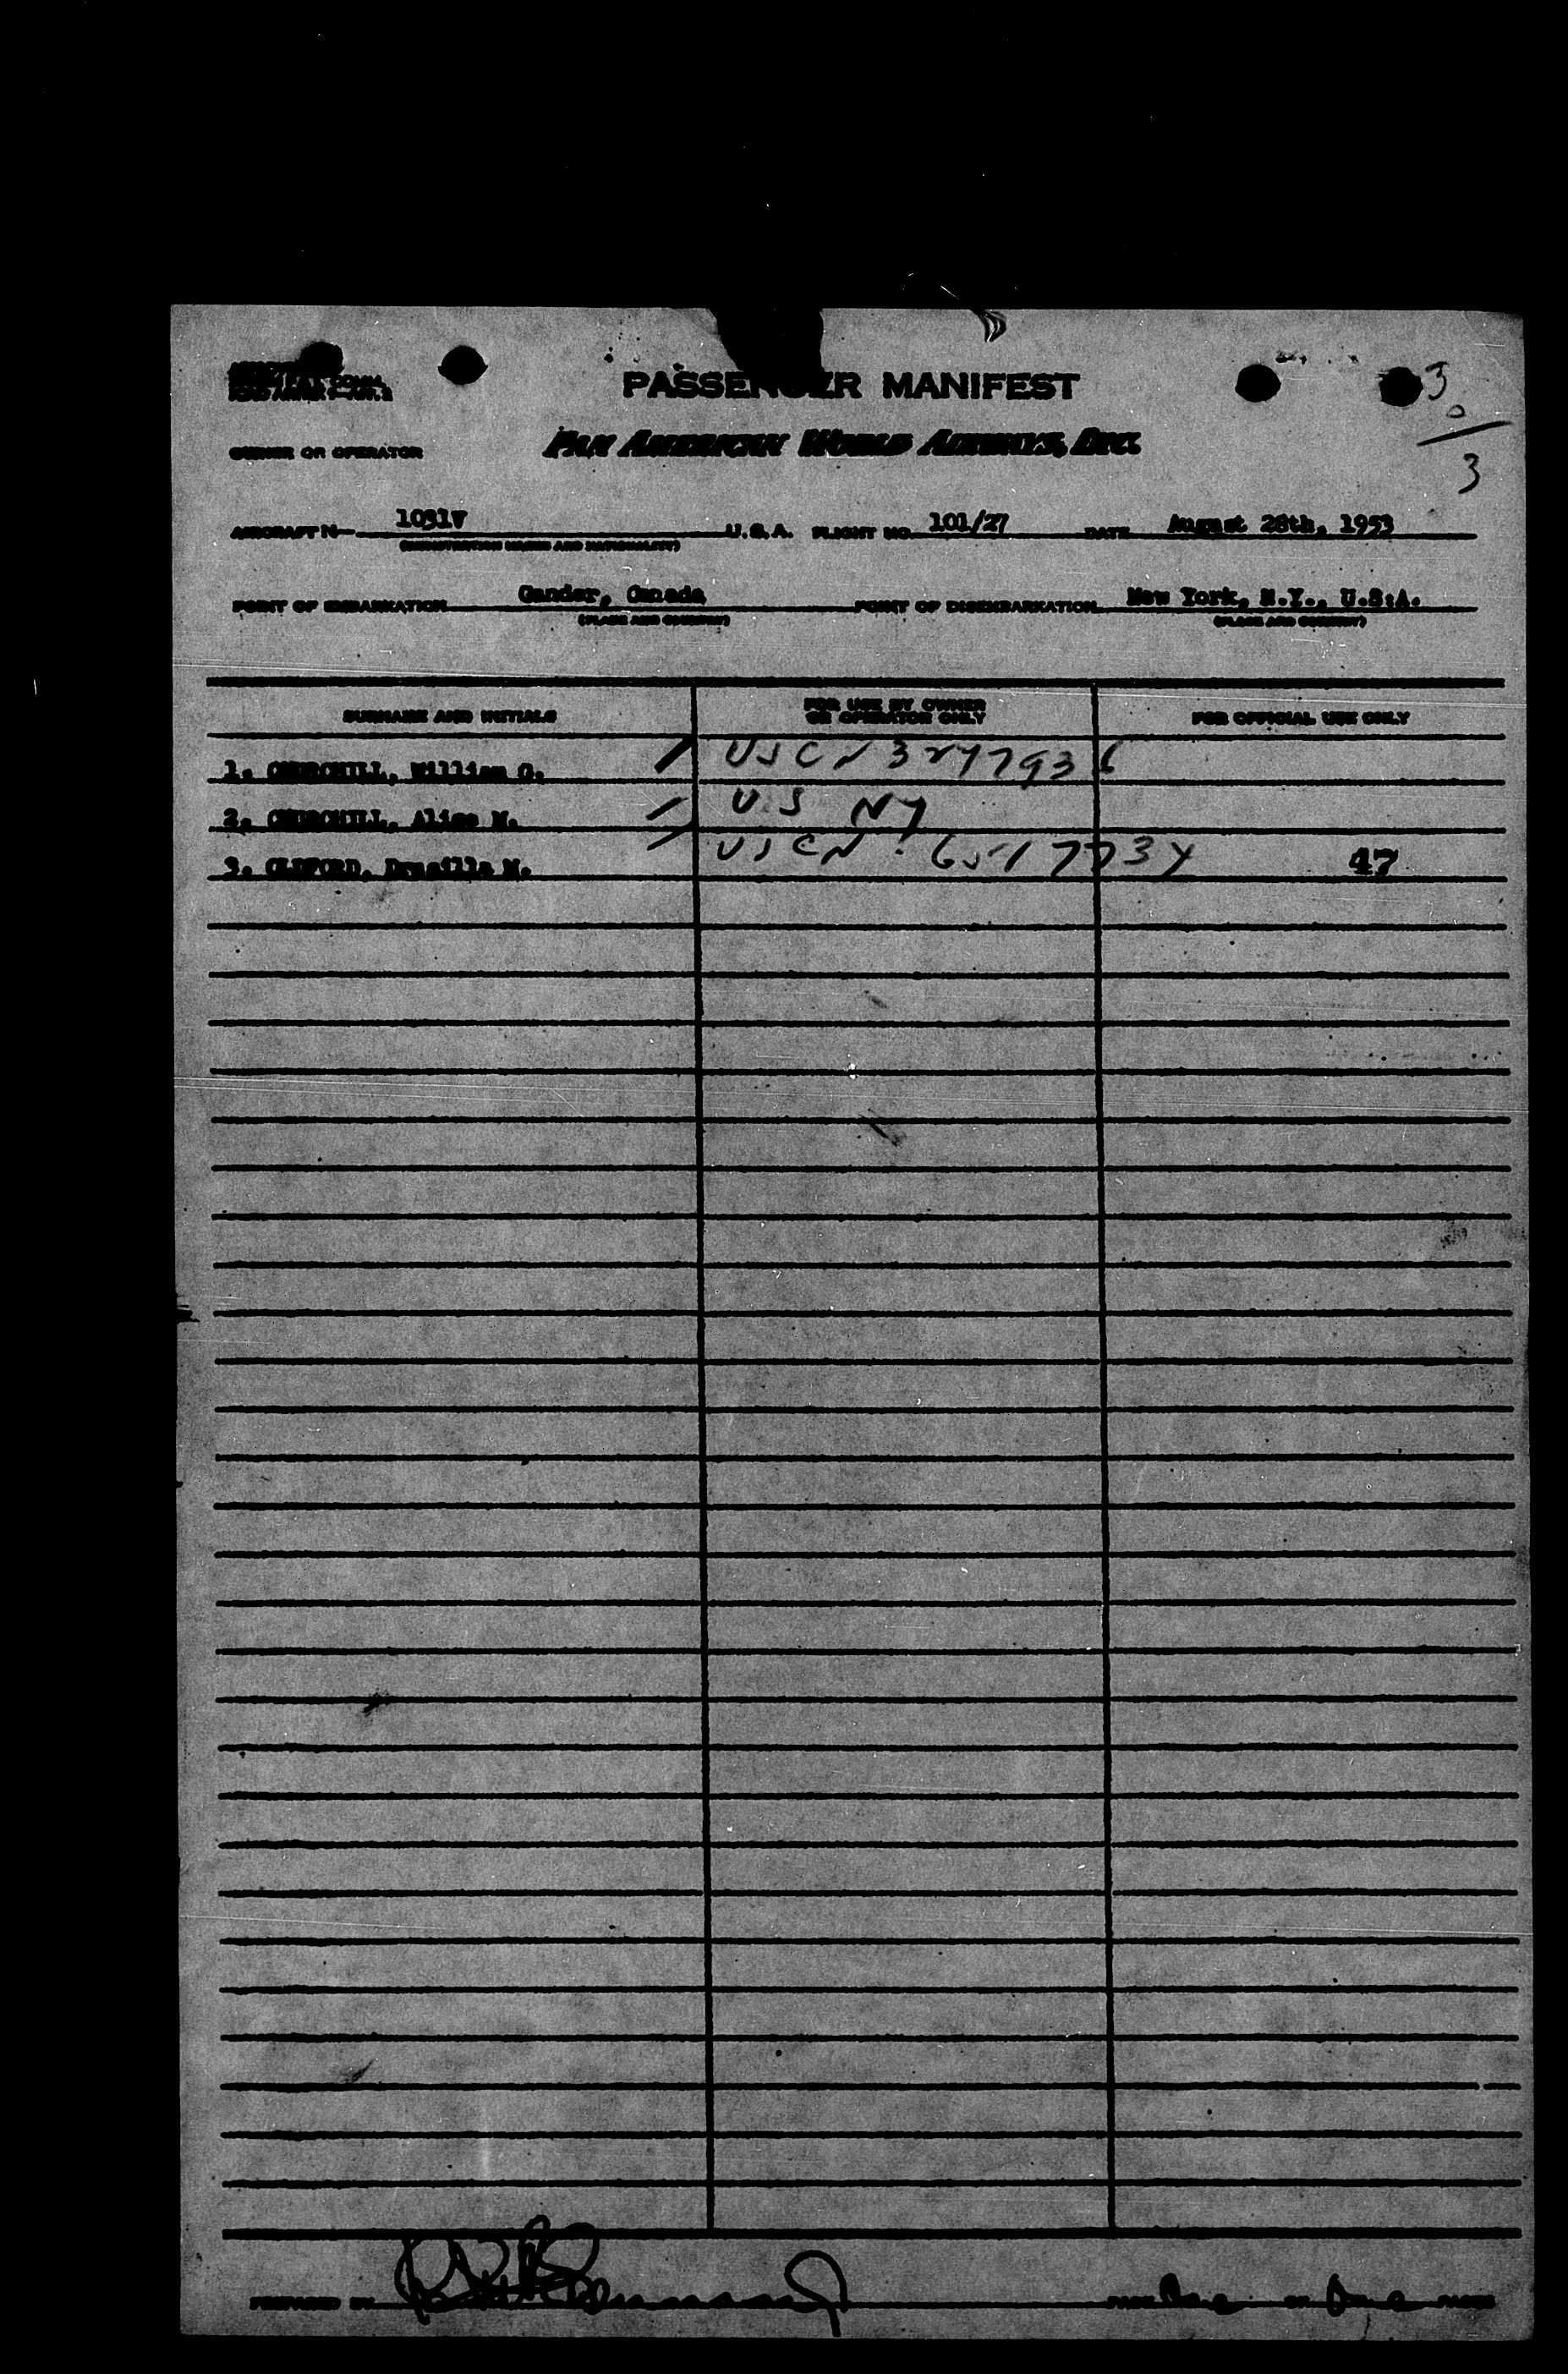 PASSENGER MANIFEST
3
0
3
OWNER OR OPERATOR PAN AMERICAN WORLD AIRWAYS, INC.
AIRCRAFT N- 1031V U.S.A. FLIGHT NO. 101/27 DATE August 28th, 1953
(REGISTRATION MARKS AND NATIONALITY)
POINT OF EMBARKATION Gander, Canada POINT OF DISEMBARKATION New York, N.Y., U.S.A.
(PLACE AND COUNTRY) (PLACE AND COUNTRY)
SURNAME AND INITIALS FOR USE BY OWNER OR OPERATOR ONLY FOR OFFICIAL USE ONLY
1. CHURCHILL, William O. USCN
2. CHURCHILL, M. U.S NY
3. Drusilla M. USCN 47
PREPARED BY PAGE One OF One PAGES